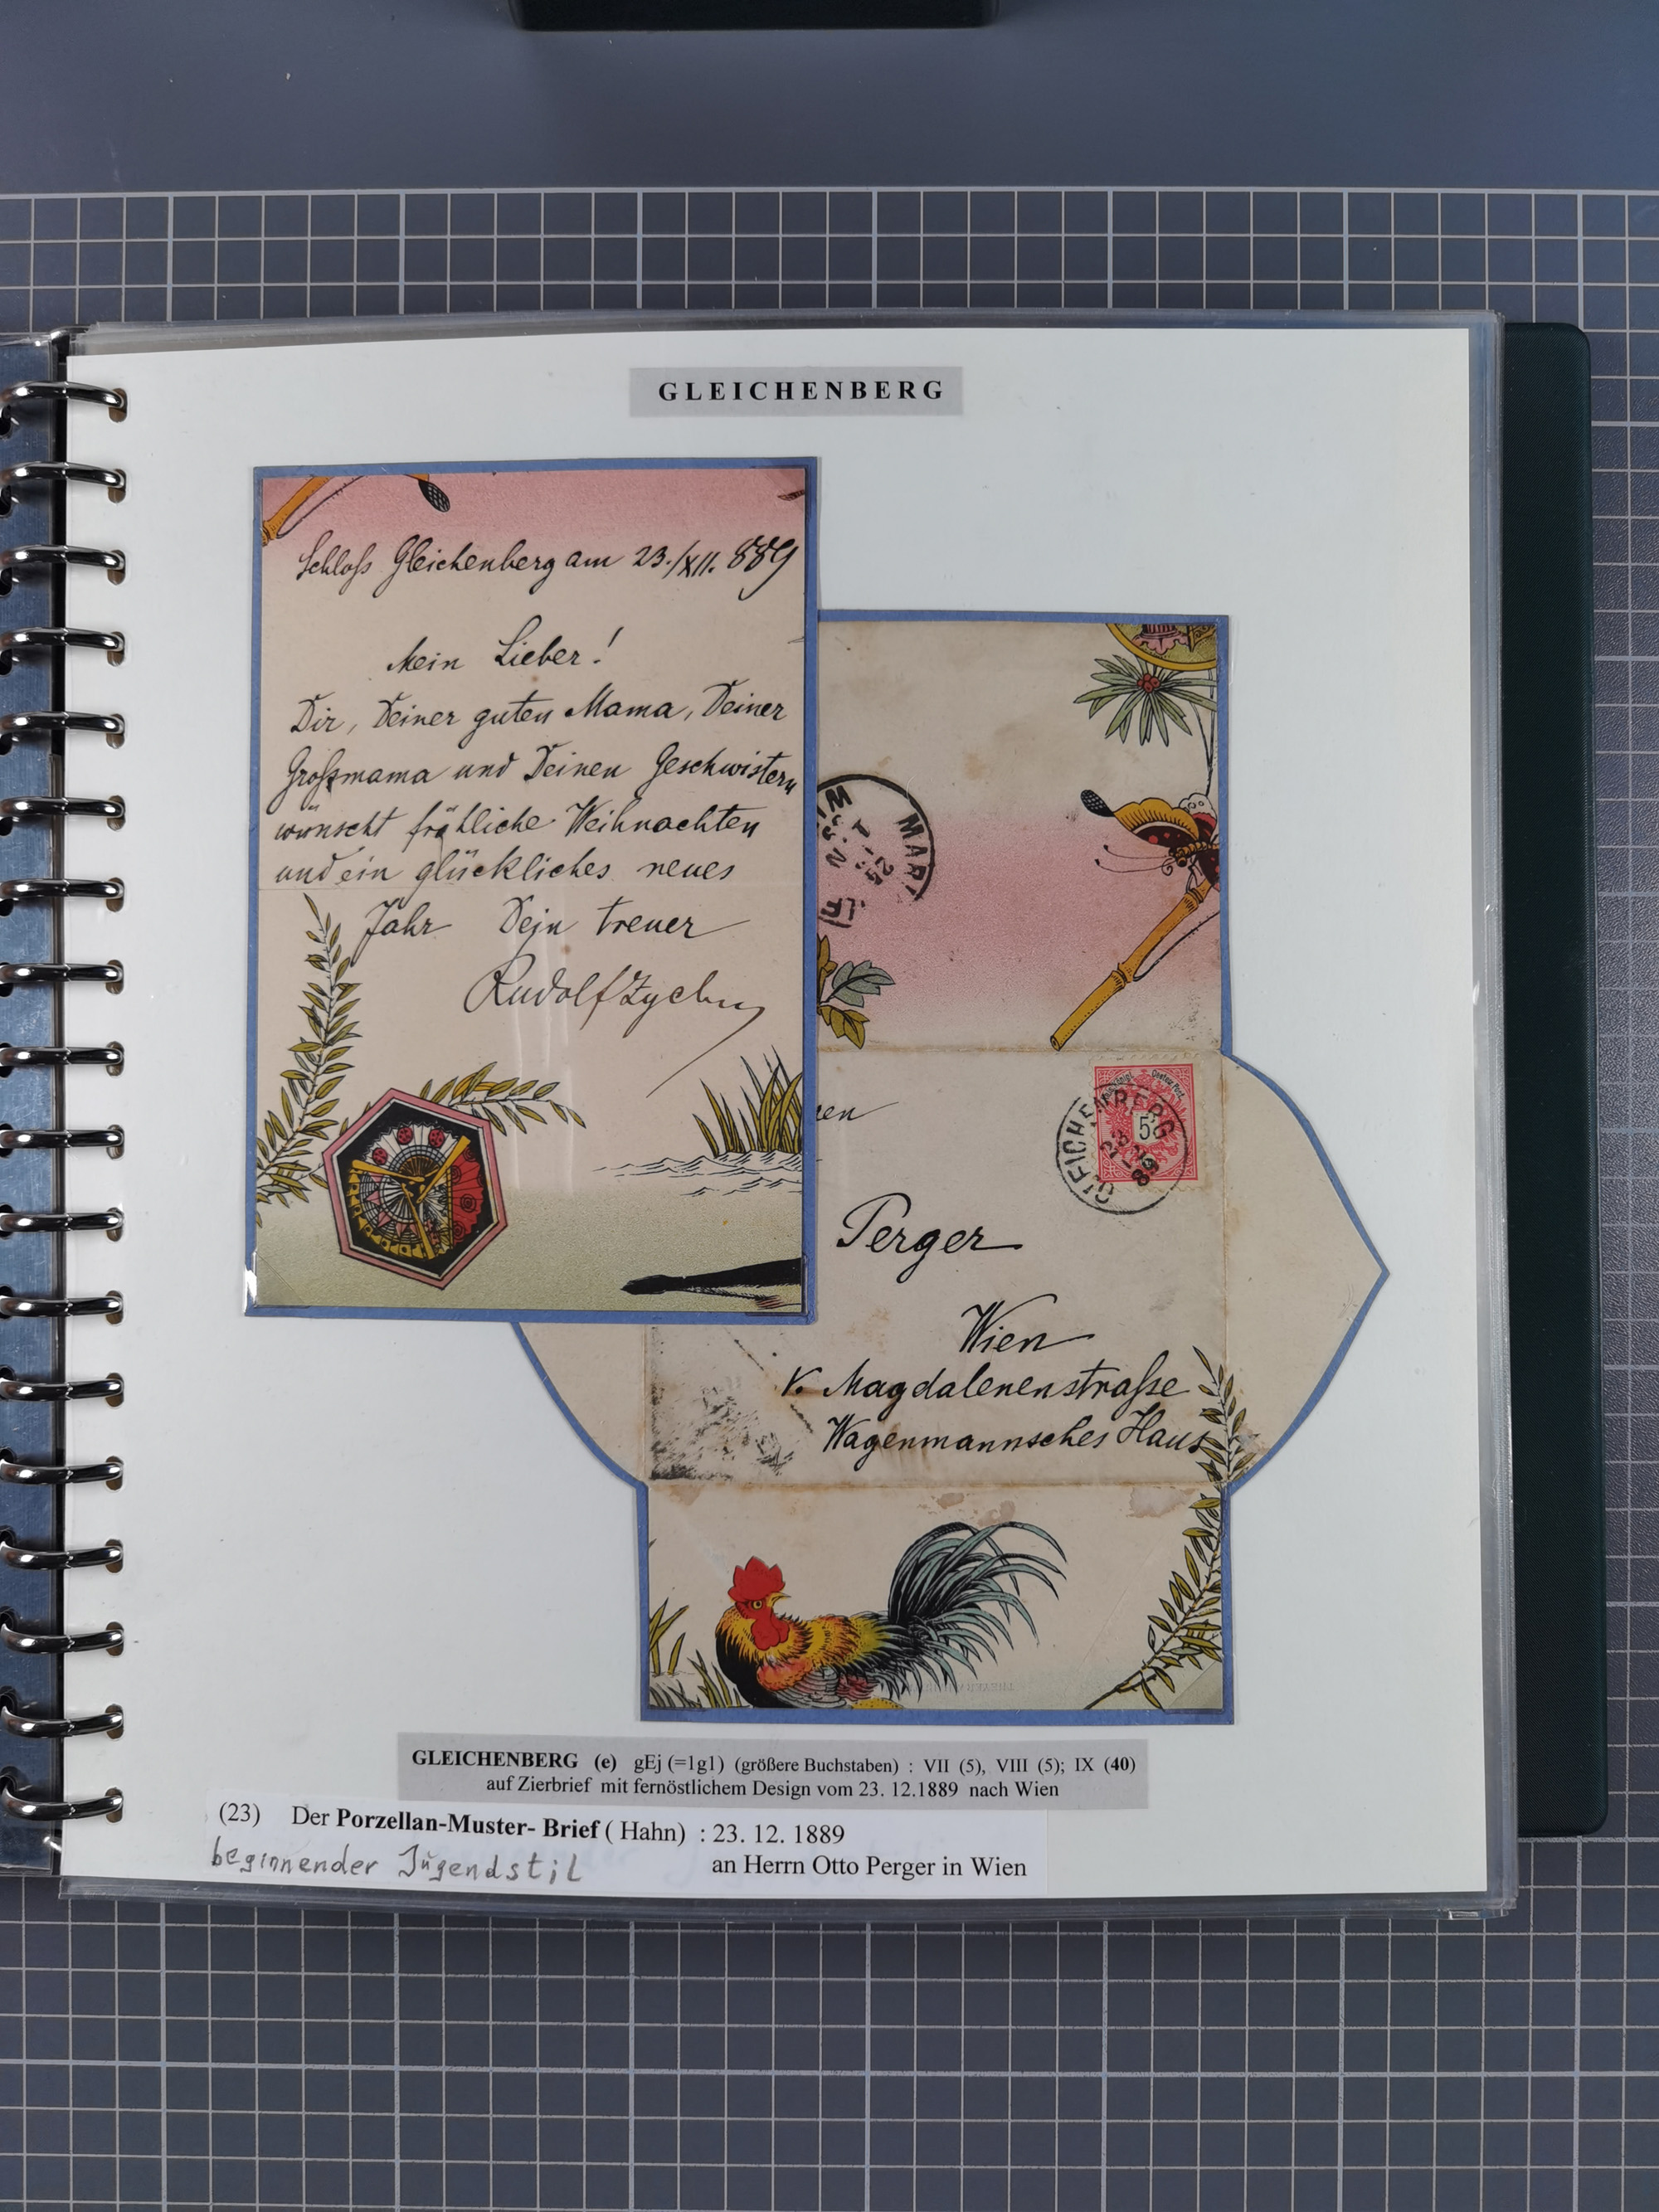 GLEICHENBERG
Schloß Gleichenberg am 23./XII. 889
Mein Lieber!
Dir, Deiner guten Mama, Deiner
Großmama und Deinen Geschwistern
wünscht fröhliche Weihnachten
und ein glückliches neues
Jahr Dein treuer
Rudolf
MARI
W
5
GLEICHENBERG
23
89
Perger
Wien
V. Magdalenenstraße
Wagenmannsches Haus
GLEICHENBERG (e) gEj (=1g1) (größere Buchstaben) : VII (5), VIII (5); IX (40)
auf Zierbrief mit fernöstlichem Design vom 23. 12.1889 nach Wien
(23) Der Porzellan-Muster- Brief ( Hahn) : 23. 12. 1889
beginnender Jugendstil an Herrn Otto Perger in Wien